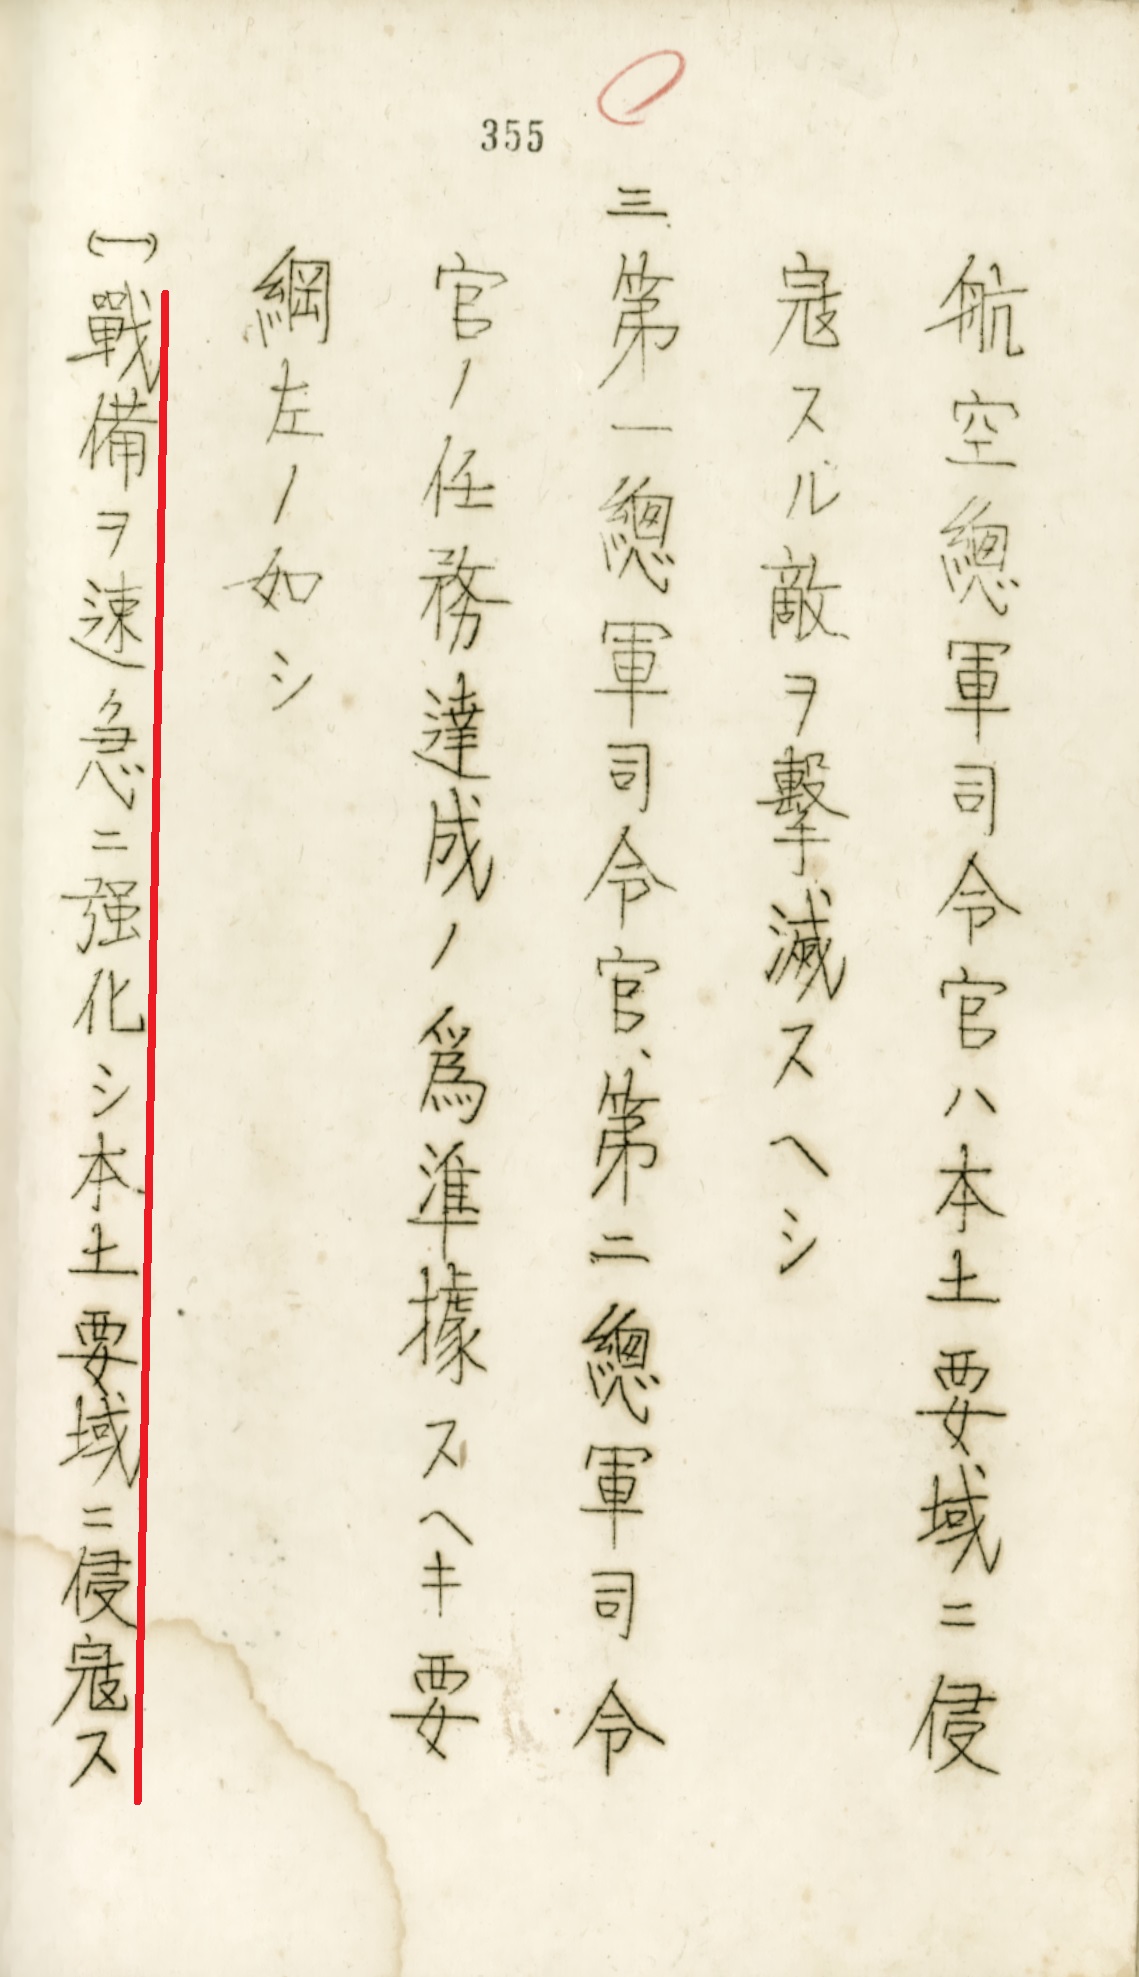 355
航空總軍司令官ハ本土要域ニ侵
寇スル敵ヲ擊滅スヘシ
三 第一總軍司令官、第二總軍司令
官ノ任務達成ノ爲準據スヘキ要
綱左ノ如シ
(一)戰備ヲ速急ニ强化シ本土要域ニ侵寇ス